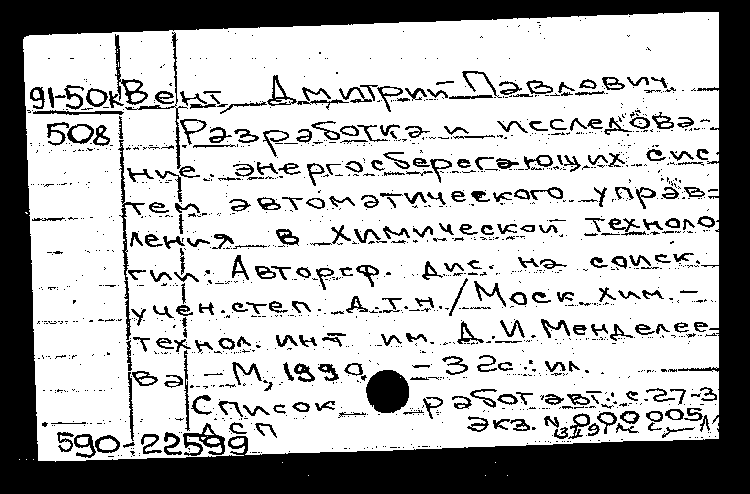 91-50к Вент, Дмитрий Павлович.
508 Разработка и исследова-
ние энергосберегающих сис-
тем автоматического управ-
ления в химической техноло
гии: Автореф. дис. на соиск.
учен. степ. д.т.н. / Моск. хим.-
технол. ин-т им. Д.И. Менделее-
ва - М., 1990. - 32с.: ил.
Список работ авт.: с. 27-3
ДСП экз. N 000005
590-22599